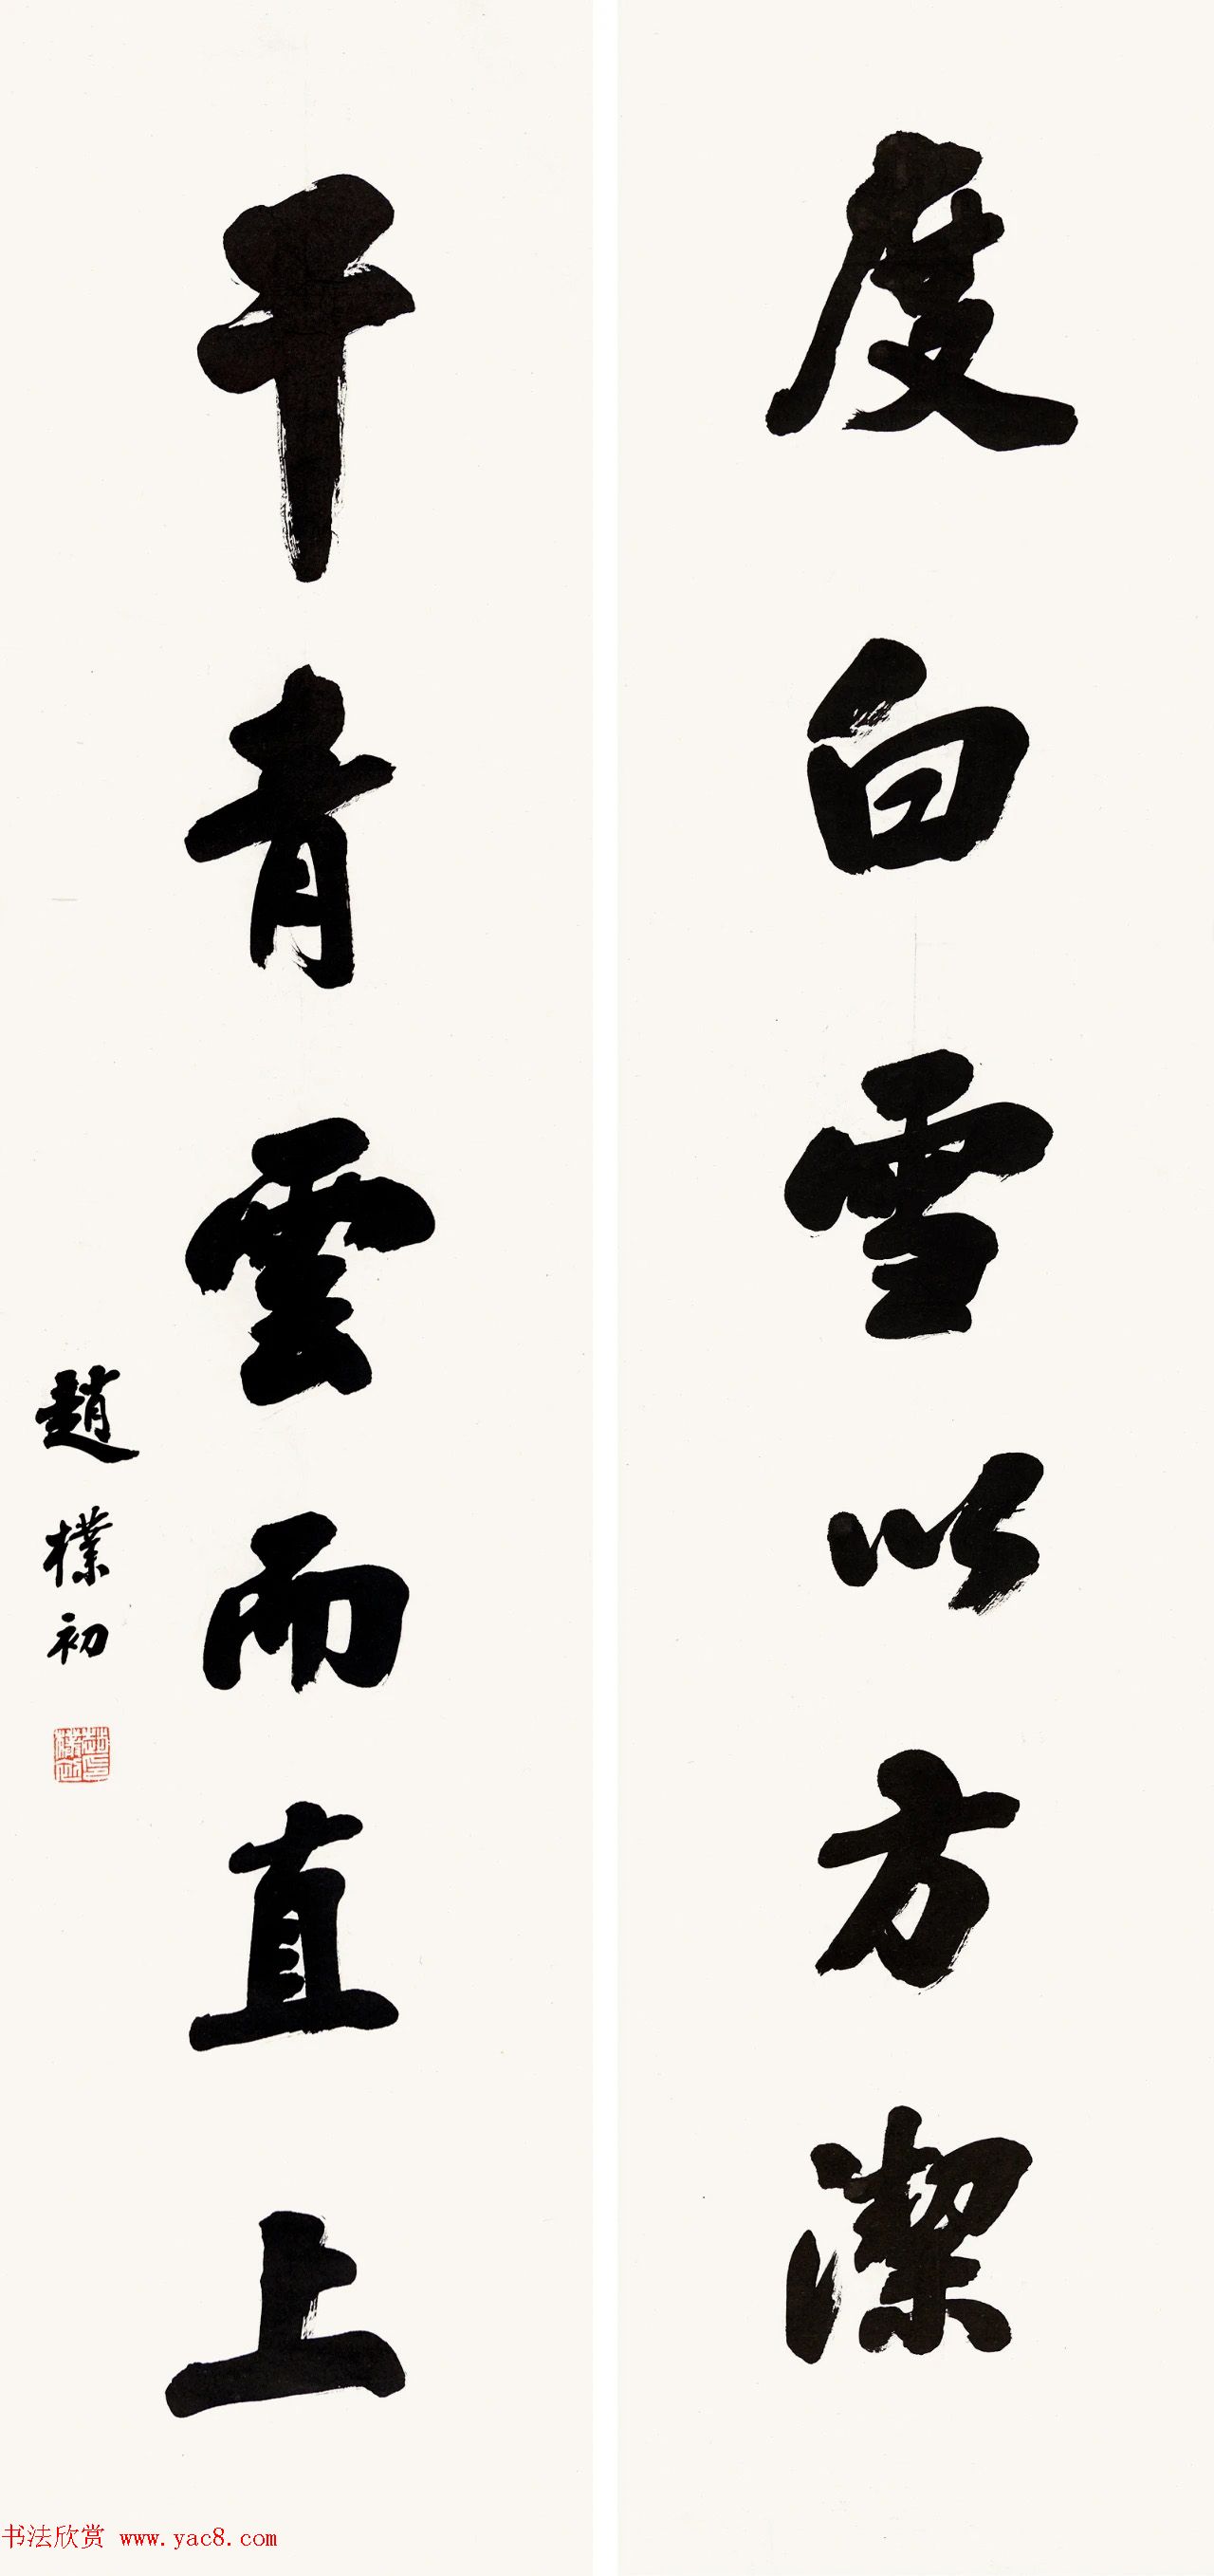 度白雪以方潔
干青雲而直上
趙樸初
书法欣赏 www.yac8.com